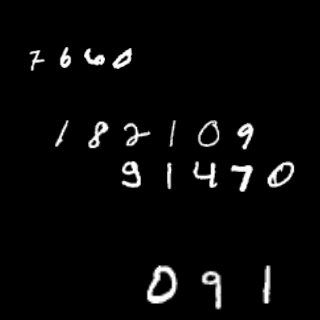 7660
182109
91470
091